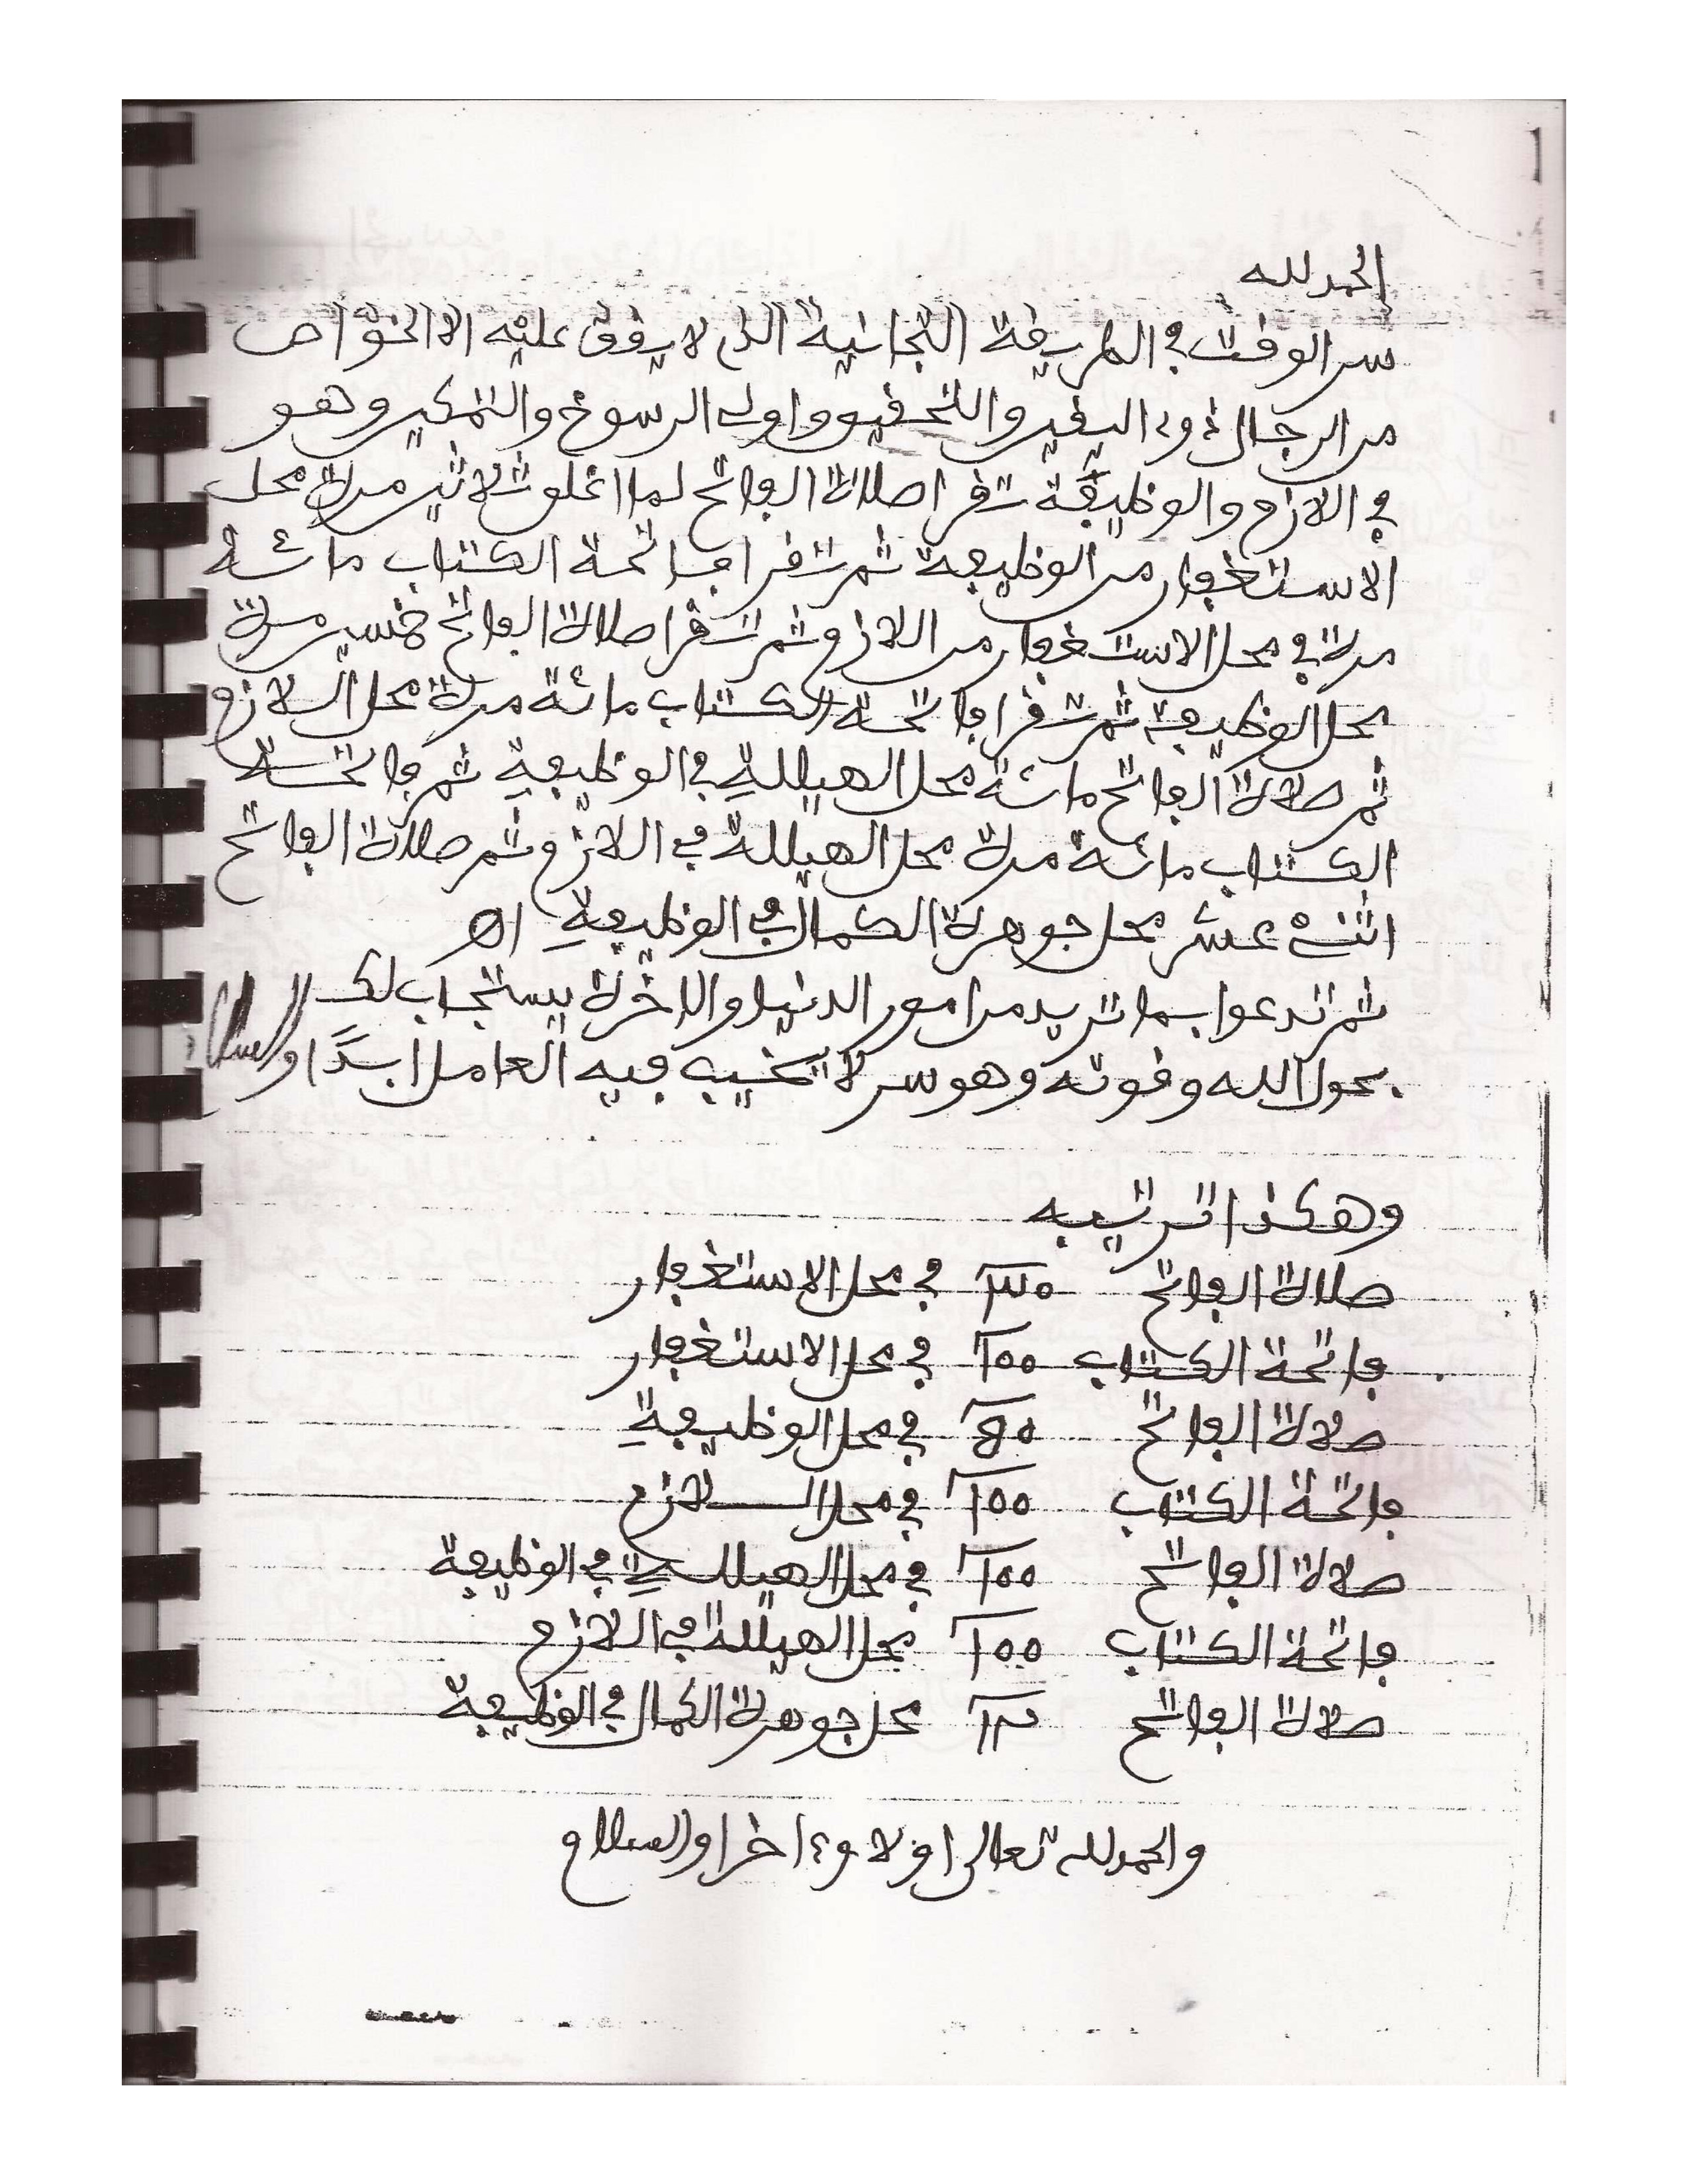 الحمد لله
سر الوقت في الطريقة التجانية الذي لا يوفق عليه الا الخواص
من الرجال ذوي اليقين والتحقيق واولي الرسوخ والتمكين وهو
في اللازم والوظيفة تقرا صلاة الفاتح لما اغلق ثلاثين مرة محل
الاستغفار من الوظيفة ثم تقرا فاتحة الكتاب مائة
مرة في محل الاستغفار من اللازم ثم تقرا صلاة الفاتح خمسين مرة
محل الوظيفة ثم تقرا فاتحة الكتاب مائة مرة محل اللازم
ثم صلاة الفاتح مائة محل الهيللة في الوظيفةِ ثم فاتحة
الكتاب مائة مرة محل الهيللة في اللازم ثم صلاة الفاتح
اثنى عشر محل جوهرة الكمال في الوظيفةِ اه
ثم تدعوا بما تريد من امور الدنيا والاخرة يستجاب لك
بحول الله وقوته وهو سر لا يخيب فيه العامل ابدًا والسلام
وهكذا ترتيبه
صلاة الفاتح ٣٠ في محل الاستغفار
فاتحة الكتاب 100 في محل الاستغفار
صلاة الفاتح 50 في محل الوظيفةِ
فاتحة الكتاب 100 في محل اللازم
صلاة الفاتح 100 في محل الهيللةِ في الوظيفة
فاتحة الكتاب 100 محل الهيللة في اللازم
صلاة الفاتح ١٢ محل جوهرة الكمال في الوظيفة
والحمد لله تعالى اولا وءاخرا والسلام